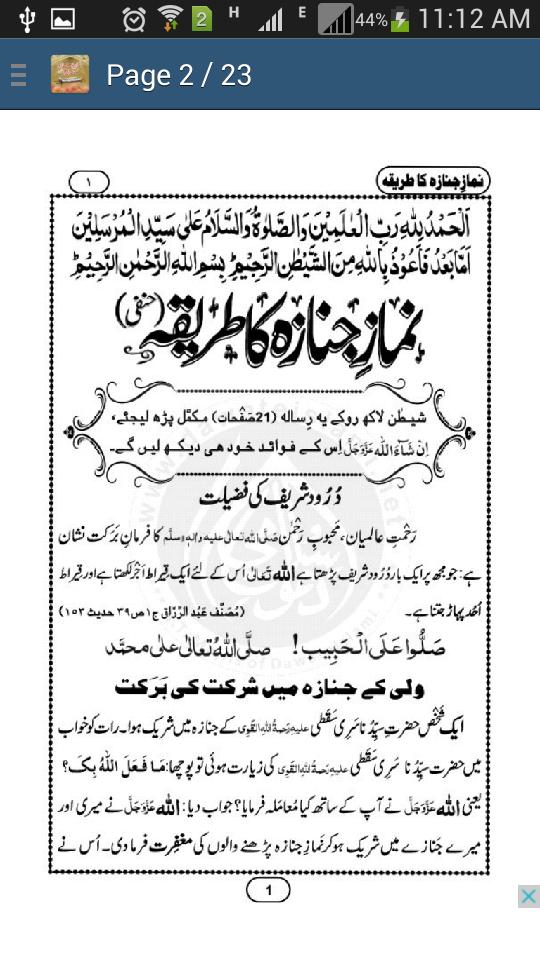 H E 44% 11:12 AM
2
Page 2 / 23
١ نمازِ جنازہ کا طریقہ
اَلْحَمْدُ لِلّٰہِ رَبِّ الْعٰلَمِیْنَ وَالصَّلٰوۃُ وَالسَّلَامُ عَلٰی سَیِّدِ الْمُرْسَلِیْنَ
اَمَّا بَعْدُ فَاَعُوْذُ بِاللّٰہِ مِنَ الشَّیْطٰنِ الرَّجِیْمِ ؕ بِسْمِ اللّٰہِ الرَّحْمٰنِ الرَّحِیْمِ ؕ
نمازِ جنازہ کا طریقہ (حنفی)
شیطٰن لاکھ روکے یہ رِسالہ (21صَفْحات) مکمَّل پڑھ لیجئے،
اِنْ شَآءَاللہ عَزَّوَجَلَّ اِس کے فوائد خود ھی دیکھ لیں گے۔
دُرُود شریف کی فضیلت
رَحْمتِ عالمیان، مَحبوبِ رَحْمٰن صَلَّی اللہ تعالٰی علیہ واٰلہٖ وسلَّم کا فرمانِ بَرَکت نشان
ہے: جو مجھ پر ایک بار دُرُود شریف پڑھتا ہے اللہ تَعَالٰی اُس کے لئے ایک قِیراط اَجْر لکھتا ہے اور قِیراط
اُحُد پہاڑ جتنا ہے۔ (مُصَنَّف عَبْد الرَّزّاق ج ١ ص ٣٩ حدیث ١٥٣)
صَلُّوا عَلَی الْحَبِیب! صلَّی اللہُ تعالٰی علٰی محمَّد
ولی کے جنازہ میں شرکت کی بَرَکت
ایک شَخْص حضرتِ سیِّدُنا سَرِی سَقَطِی علیہ رَحمۃُ اللہِ القَوِی کے جنازہ میں شریک ہوا۔ رات کو خواب
میں حضرت سیِّدُنا سَرِی سَقَطِی علیہ رَحمۃُ اللہِ القَوِی کی زیارت ہوئی تو پوچھا: مَا فَعَلَ اللّٰہُ بِکَ؟
یعنی اللہ عَزَّوَجَلَّ نے آپ کے ساتھ کیا مُعامَلہ فرمایا؟ جواب دیا: اللہ عَزَّوَجَلَّ نے میری اور
میرے جَنازے میں شریک ہو کر نَمازِ جنازہ پڑھنے والوں کی مغفِرت فرما دی۔ اُس نے
1